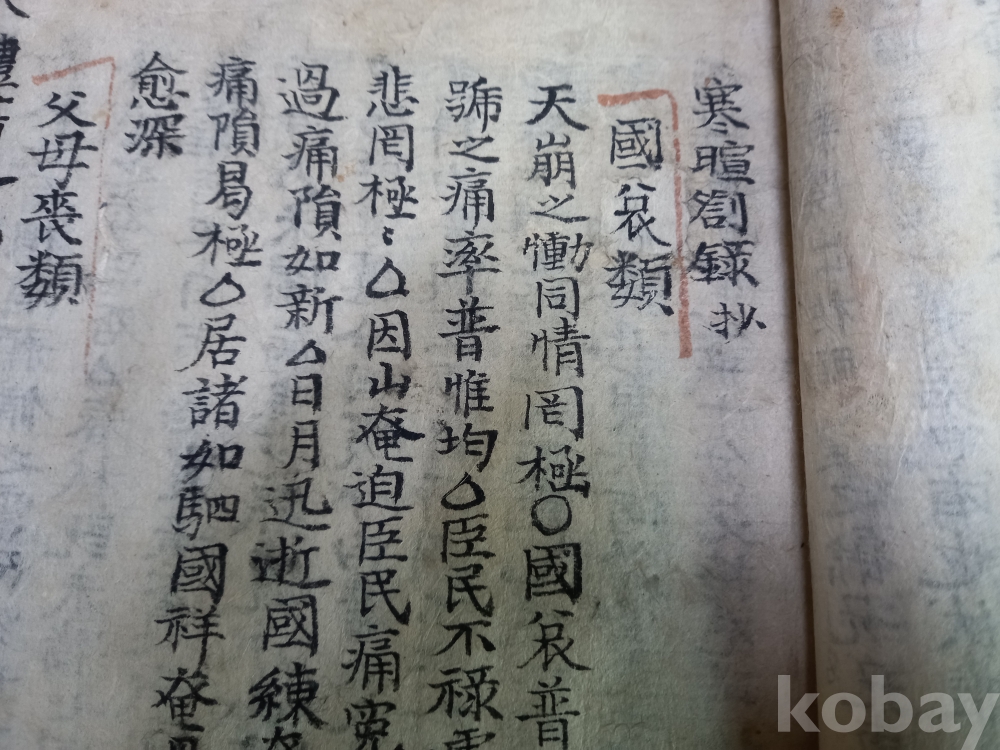 寒暄劄錄 抄
國哀類
天崩之慟同情罔極〇國哀普
號之痛率普惟均△臣民不祿
悲罔極〻△因山奄迫臣民痛寃
過痛隕如新△日月迅逝國練奄
痛隕曷極△居諸如駟國祥奄
愈深
父母喪類
kobay